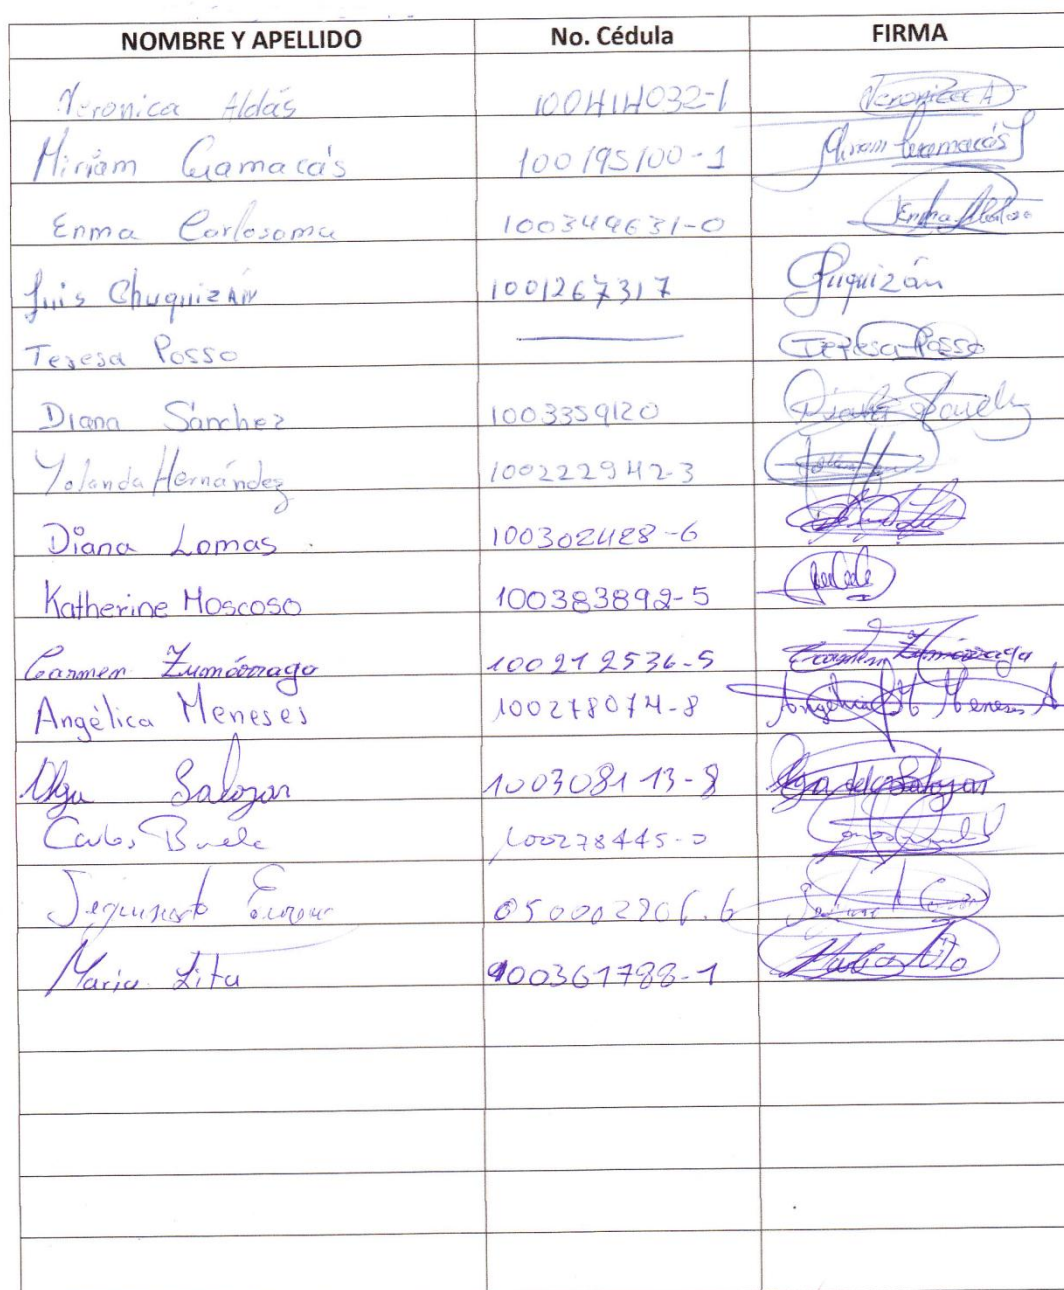 NOMBRE Y APELLIDO No. Cédula FIRMA
Veronica Aldás 100414032-1 Veronica A
Miriam Cuamacás 100195100-1 Miriam Cuamacás
Enma Carlosama 100349631-0 Enma
Luis Chuquizán 1001267317 Chuquizán
Teresa Posso Teresa Posso
Diana Sánchez 1003359120 Diana
Yolanda Hernández 100222942-3
Diana Lomas. 100302428-6
Katherine Moscoso 100383892-5
Carmen Zumárraga 100212536-5 Carmen Zumárraga
Angélica Meneses 100278074-8 Angélica M Meneses A
Olga Salazar 100308113-8 Salazar
Carlos Buele 100278445-0
Segundo 050002206-6
Maria Lita 100361788-1 Maria Lita